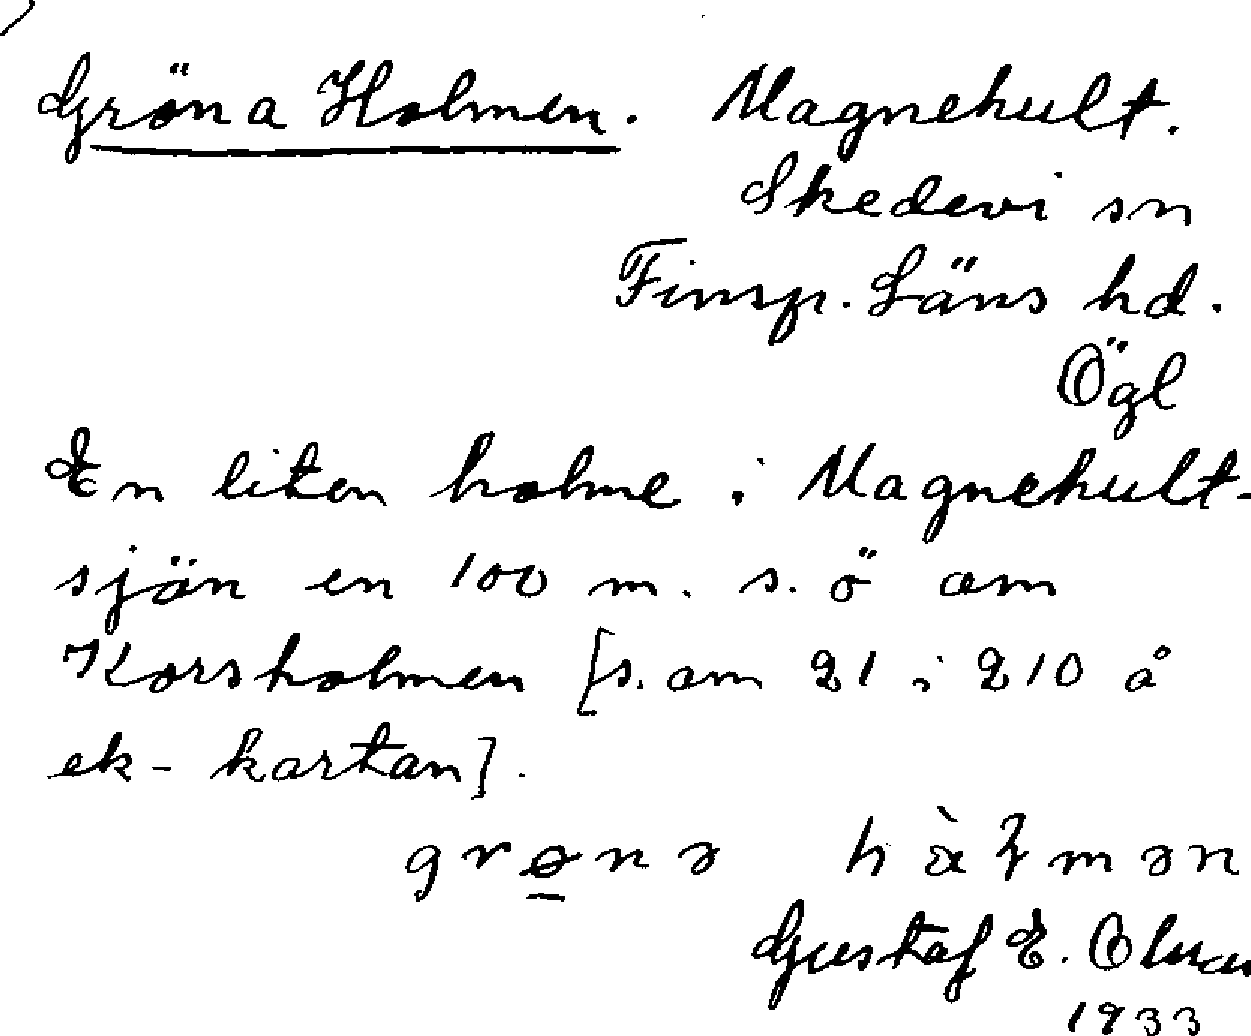 Gröna Holmen. Magnehult.
Skedevi sn
Finsp. Läns hd.
Ögl
En liten holme i Magnehult-
sjön en 100 m. s. ö om
Korsholmen [s. om 21 i 210 å
ek-kartan].
Gustaf E.
1933